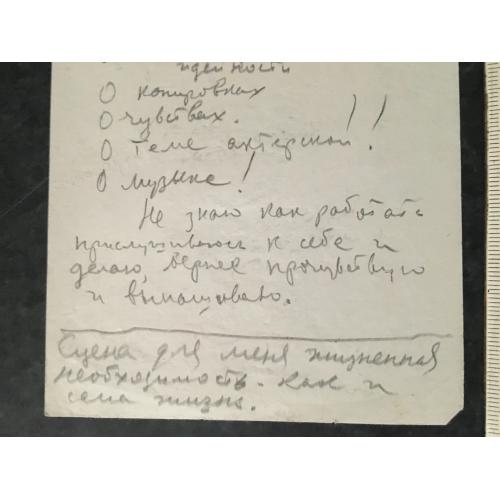 идейности
О копировках
О чувствах.
О теме актёрской!!
О музыке!
Не знаю как работать
прислушиваюсь к себе и
делаю, вернее прочувствую
и вытанцовываю.
Сцена для меня жизненная
необходимость. как и
сама жизнь.